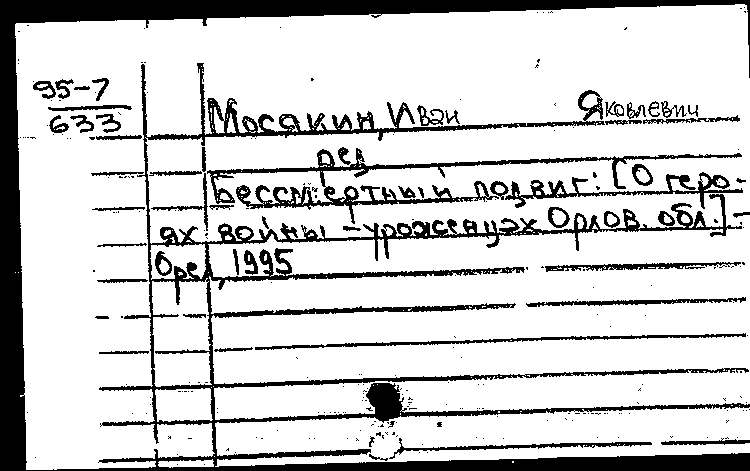 95-7
633
Мосякин, Иван Яковлевич
ред
Бессмертный подвиг: [О геро-
ях войны - уроженцах Орлов. обл.] -
Орел, 1995